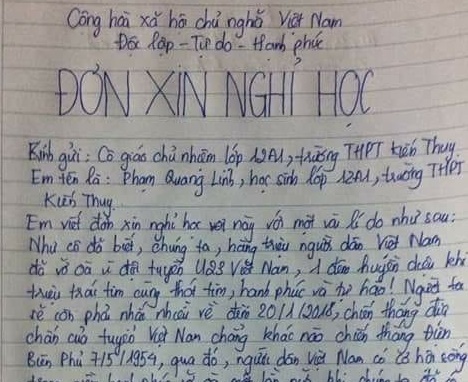 Công hòa xã hội chủ nghĩa Việt Nam
Độc lập - Tự do - Hạnh phúc
ĐƠN XIN NGHỈ HỌC
Kính gửi: Cô giáo chủ nhiệm lớp 12A1, trường THPT Kiến Thụy
Em tên là: Phạm Quang Linh, học sinh lớp 12A1, trường THPT
Kiến Thụy
Em viết đơn xin nghỉ học này với một vài lí do như sau:
Như cô đã biết, chúng ta, hàng triệu người dân Việt Nam
đã vỡ oà vì đội tuyển U23 Việt Nam, 1 đêm huyền diệu khi
triệu trái tim cùng thổi tim, hạnh phúc và tự hào! Người ta
sẽ còn phải nhắc nhiều về đêm 20/1/2018, chiến thắng địa
chấn của tuyển Việt Nam chẳng khác nào chiến thắng Điện
Biên Phủ 7/5/1954, qua đó, người dân Việt Nam có cơ hội sống